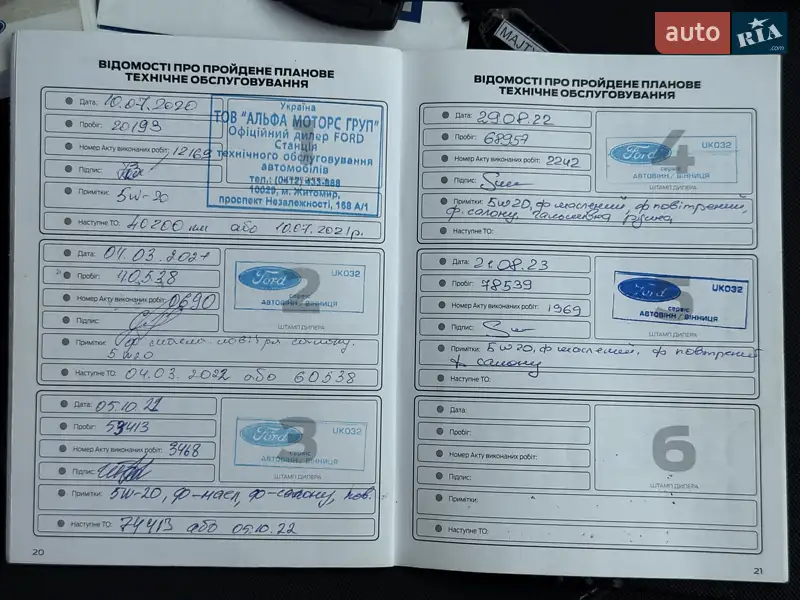 auto RIA .com
МАЈТ
ВІДОМОСТІ ПРО ПРОЙДЕНЕ ПЛАНОВЕ
ТЕХНІЧНЕ ОБСЛУГОВУВАННЯ
Дата: 10.07.2020
Пробіг: 20193
Номер Акту виконаних робіт: 12169
Підпис:
Примітки: 5w-20
Наступне ТО: 40200 км або 10.07.2021р.
1
Україна
ТОВ "АЛЬФА МОТОРС ГРУП"
Офіційний дилер FORD
Станція
технічного обслуговування
автомобілів
тел.: (0412) 433-888
10029, м. Житомир,
проспект Незалежності, 168 А/1
Дата: 04.03.2021
Пробіг: 40,538
Номер Акту виконаних робіт: 0690
Підпис:
Примітки: ф масла повітря салону.
5w20
Наступне ТО: 04.03.2022 або 60538
2
Ford UK032
сервіс
АВТОВІНН / ВІННИЦЯ
ШТАМП ДИЛЕРА
Дата: 05.10.21
Пробіг: 59413
Номер Акту виконаних робіт: 3468
Підпис:
Примітки: 5W-20, ф-масл, ф-салону, пов.
Наступне ТО: 74413 або 05.10.22
3
Ford UK032
сервіс
АВТОВІНН / ВІННИЦЯ
ШТАМП ДИЛЕРА
20
ВІДОМОСТІ ПРО ПРОЙДЕНЕ ПЛАНОВЕ
ТЕХНІЧНЕ ОБСЛУГОВУВАННЯ
Дата: 29.08.22
Пробіг: 68957
Номер Акту виконаних робіт: 2242
Підпис:
Примітки: 5w20, ф масляний, ф повітряний,
ф. салону. гальмівна рідина
Наступне ТО:
4
Ford UK032
сервіс
АВТОВІНН / ВІННИЦЯ
ШТАМП ДИЛЕРА
Дата: 21.08.23
Пробіг: 78539
Номер Акту виконаних робіт: 1969
Підпис:
Примітки: 5w20, ф масляний, ф повітряний
ф салону
Наступне ТО:
5
Ford UK032
сервіс
АВТОВІНН / ВІННИЦЯ
ШТАМП ДИЛЕРА
Дата:
Пробіг:
Номер Акту виконаних робіт:
Підпис:
Примітки:
Наступне ТО:
6
ШТАМП ДИЛЕРА
21